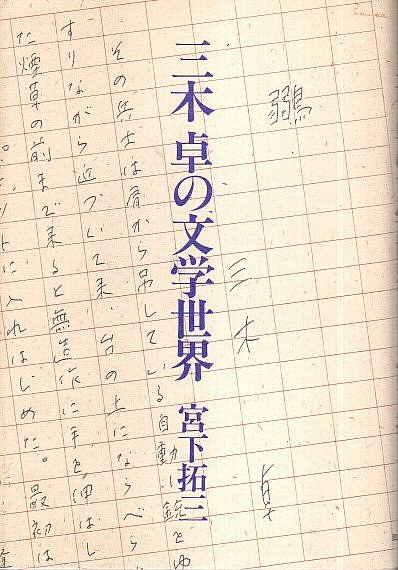 鶸
三木 卓
三木 卓の文学世界 宮下拓三
その兵士は肩から吊している自動小銃をゆ
すりながら近づいて来、台の上にならべら
た煙草の前まで来ると無造作に手を伸ばし
に入れはじめた。最初は